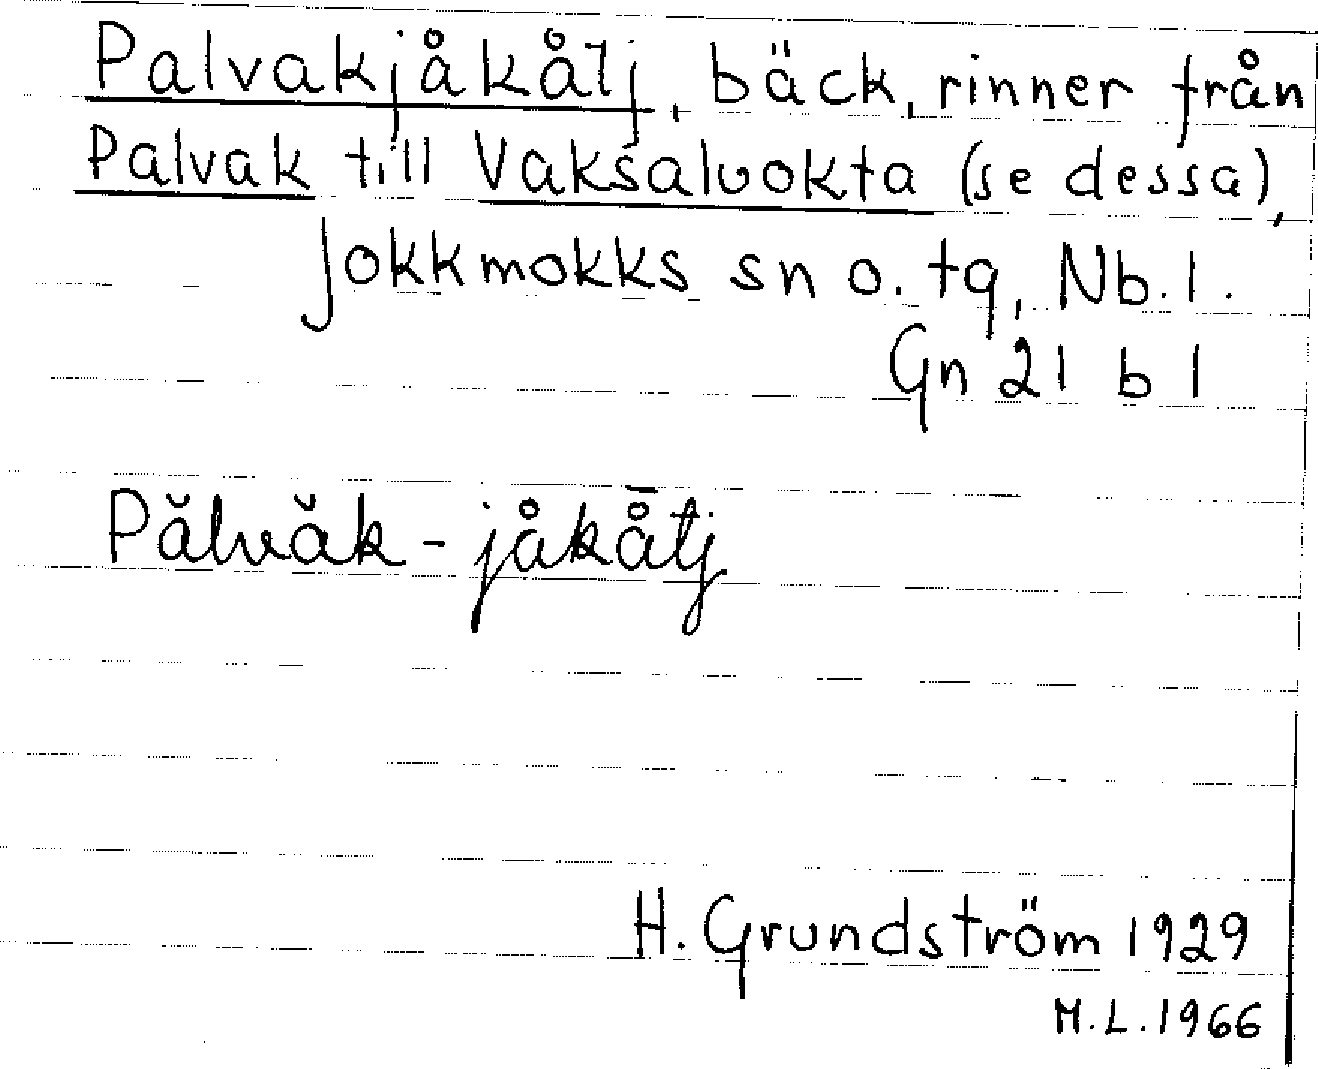 Palvakjåkålj, bäck, rinner från
Palvak till Vaksaluokta (se dessa),
Jokkmokks sn o. tg, Nb. l.
Gn 21 b 1
Pălvăk-jåkå̄tj
H. Grundström 1929
M.L. 1966